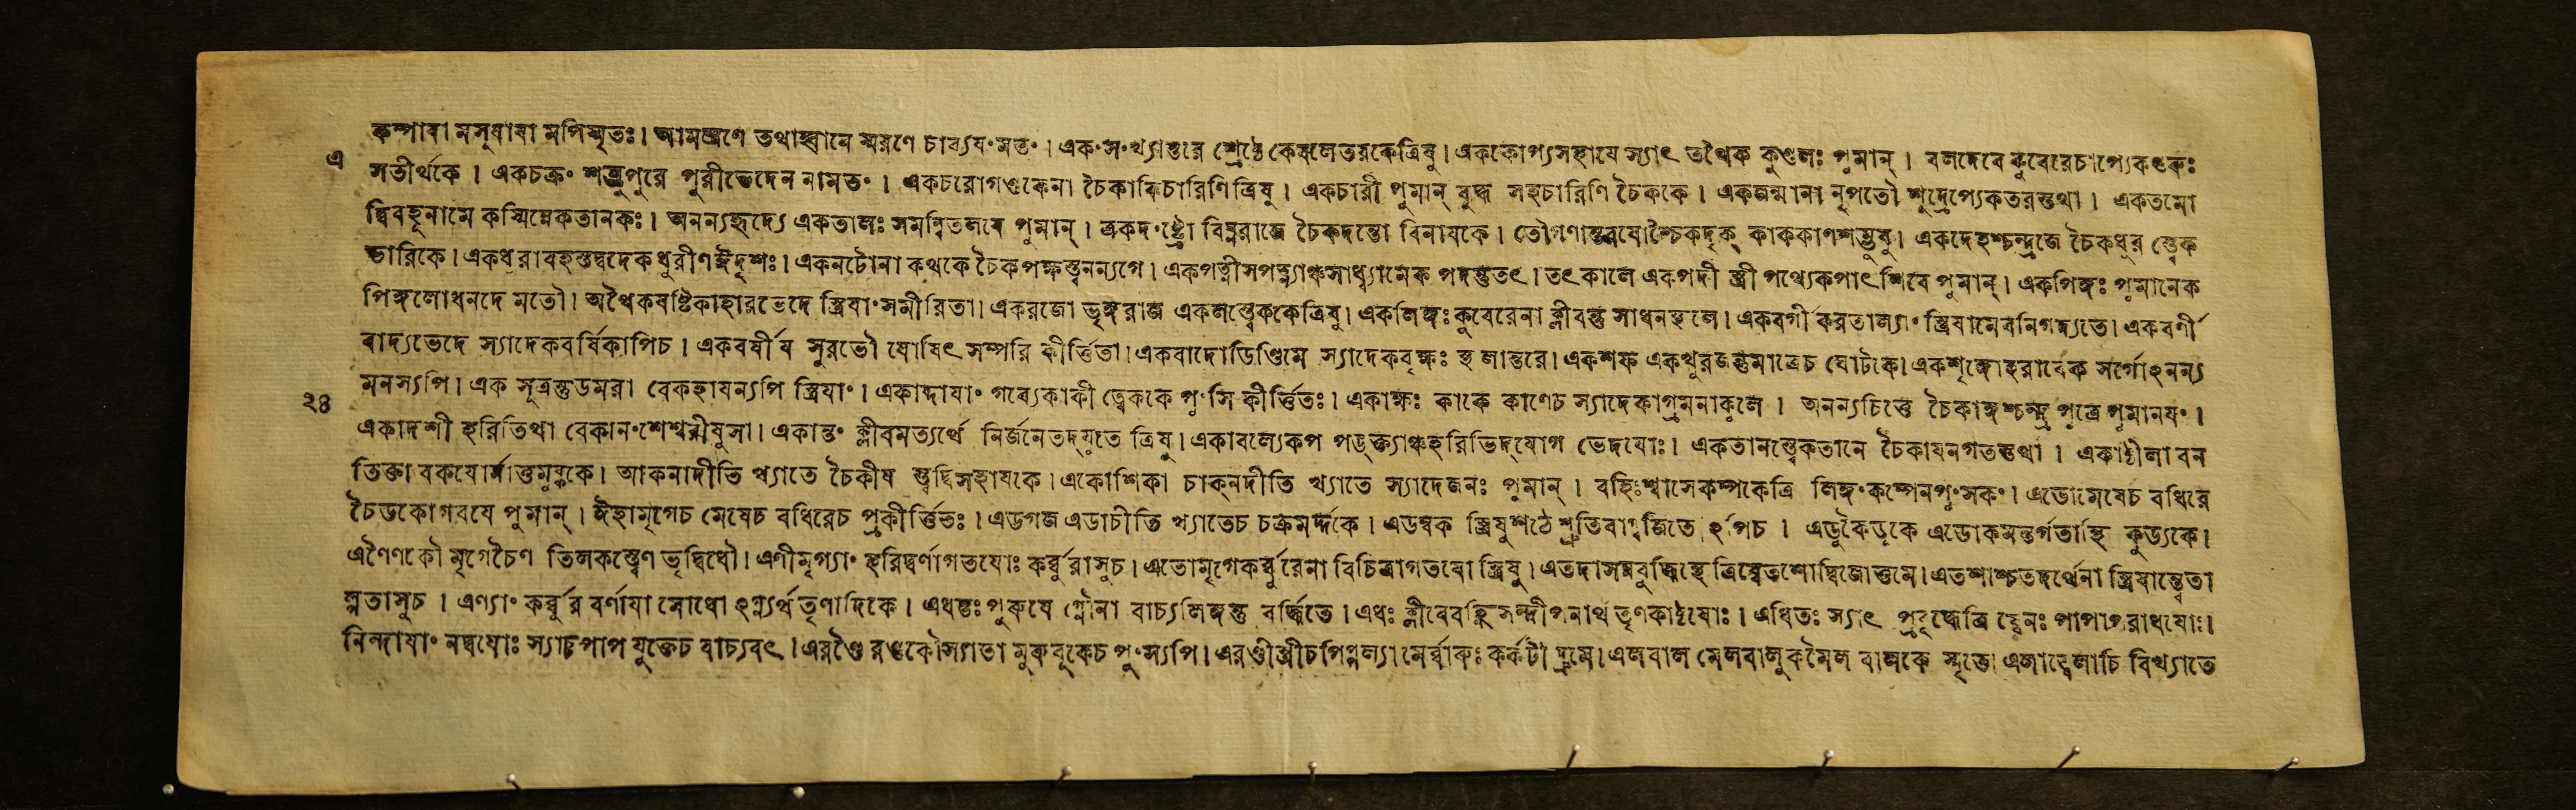 কম্পাবা মসুবাবা মপিস্মৃতঃ। আমন্ত্রণে তথাহ্বানে স্মরণে চাব্যয়ংমতং। একংসংখ্যান্তরে শ্রেষ্ঠে কেবলেতরকেত্রিষু। এককোপ্যসহাযে স্যাৎ তথৈক কুণ্ডলঃ পুমান্। বলদেবে কুবেরেচাপ্যেকগুরুঃ
এ
সতীর্থকে। একচক্রং শম্ভুপুরে পুরীভেদেন নামতং। একচরোগণ্ডকেনা চৈকাকিচারিণিত্রিষু। একচারী পুমান্ বুদ্ধ সহচারিণি চৈককে। একজন্মানা নৃপতৌ শূদ্রেপ্যেকতরস্তথা। একতমো
দ্বিবহূনামে কস্মিন্নেকতানকঃ। অনন্যহৃদ্যে একতালঃ সমন্বিতলবে পুমান্। একদংষ্ট্রো বিঘ্নরাজে চৈকদন্তো বিনাযকে। তৌগণান্তরযোশ্চৈকদৃক্ কাককাণশম্ভুষু। একদেহশ্চন্দ্রজে চৈকধুর স্ত্বেক
ভারিকে। একধুরাবহস্তদ্বদেক ধুরীণঈদৃশঃ। একনটোনা কথকে চৈকপক্ষস্ত্বনন্যগে। একপত্নীসপত্ন্যাঞ্চসাধ্ব্যামেক পদন্তুতৎ। তৎ কালে একপদী স্ত্রী পথ্যেকপাৎ শিবে পুমান্। একপিঙ্গঃ পুমানেক
পিঙ্গলোধনদে মতৌ। অথৈকষষ্টিকাহারভেদে স্ত্রিযাং সমীরিতা। একরজো ভৃঙ্গরাজ একলস্ত্বেককেত্রিষু। একলিঙ্গঃকুবেরেনা ক্লীবন্তু সাধনস্থলে। একবর্গী করতাল্যাং স্ত্রিযামেবনিগদ্যতে। একবর্ণী
বাদ্যভেদে স্যাদেকবর্ষিকাপিচ। একবর্ষীয সুরভৌ যোষিৎ সম্পরি কীর্ত্তিতা। একবাদোডিণ্ডিমে স্যাদেকবৃক্ষঃ স্থলান্তরে। একশফ একখুরজন্তুমাত্রেচ ঘোটকে। একশৃঙ্গোহরাবেক সর্গোঽনন্য
মনস্যপি। এক সূত্রন্তুডমরা বেকহাযন্যপি স্ত্রিযাং। একাব্দাযাং গব্যেকাকী ত্বেককে পুংসি কীর্ত্তিতঃ। একাক্ষঃ কাকে কাণেচ স্যাদেকাগ্রমনাকুলে। অনন্যচিত্তে চৈকাঙ্গশ্চন্দ্র পুত্রে পুমানযং।
২৪
একাদশী হরিতিথা বেকানংশেশ্বরীষুসা। একান্তং ক্লীবমত্যর্থে নির্জনেতদ্যুতে ত্রিষু। একাবল্যেকপ পঙ্ক্ত্যাঞ্চহরিভিদ্যোগ ভেদযোঃ। একতানস্ত্বেকতানে চৈকাযনগতস্তথা। একাষ্ঠীলা বন
তিক্তা বকযোর্মাত্তমূহকে। আকনাদীতি খ্যাতে চৈকীয স্ত্বদ্বিসহাযকে। একোশিকা চাক্নদীতি খ্যাতে স্যাদেজনঃ পুমান্। বহিঃশ্বাসেকম্পকেত্রি লিঙ্গংকম্পেনপুংসকং। এডোমেষেচ বধিরে
চৈডকোগবযে পুমান্। ঈহামৃগেচ মেষেচ বধিরেচ প্রকীর্ত্তিতঃ। এডগজ এডাচীতি খ্যাতেচ চক্রমর্দ্দকে। এডমূক স্ত্রিষুশঠে শ্রুতিবাগ্বর্জিতে ঽপিচ। এডুকৈডূকে এডোকমন্তর্গতাস্থি কুড্যকে।
এণৈণকৌ মৃগেচৈণ তিলকস্ত্বেণ ভৃদ্বিধৌ। এণীমৃগ্যাং হরিদ্বর্ণাগতযোঃ কর্ব্বুরাসুচ। এতোমৃগেকর্ব্বুরেনা বিচিত্রাগতযো স্ত্রিষু। এতদাসন্নবুদ্ধিস্থে ত্রিষ্বেতশোদ্বিজোত্তমে। এতশাশ্চতদর্থেনা স্ত্রিযাস্ত্বেতা
ল্গতাসুচ। এণ্যাং কর্ব্বুর বর্ণাযা মোধো ঽগ্ন্যর্থ তৃণাদিকে। এধন্তঃ পুরুষে গ্নৌনা বাচ্যলিঙ্গন্তু বর্দ্ধিতে। এধঃ ক্লীবেবহ্নিসন্দীপনার্থ তৃণকাষ্ঠযোঃ। এধিতঃ স্যাৎ প্রবৃদ্ধেত্রি ষ্বেনঃ পাপাপরাধযোঃ।
নিন্দাযাং নদ্বযোঃ স্যাচপাপ যুক্তেচ বাচ্যবৎ। এরণ্ডৈ রণ্ডকৌস্যাতা মুরুবুকেচ পুংস্যপি। এরণ্ডীস্ত্রীচপিপ্পল্যা মের্ব্বারুঃ কর্কটী দ্রুমে। এলবাল মেলবালুকমৈল বালকে স্মৃতো এলাত্বেলাচি বিখ্যাতে